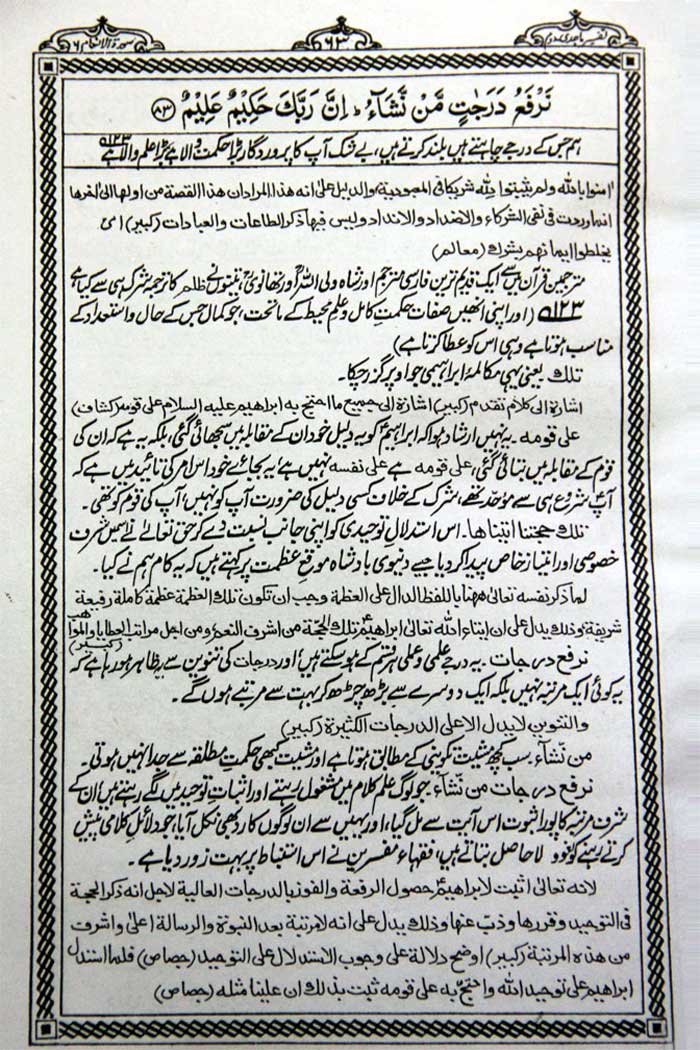 تفسیر ماجدی دوم
۶۳
سورۃ الانعام ۶
نَرْفَعُ دَرَجٰتٍ مَّنْ نَّشَآءُ ؕ اِنَّ رَبَّكَ حَكِيْمٌ عَلِيْمٌ ﴿۸۳﴾
ہم جس کے درجے چاہتے ہیں بلند کرتے ہیں، بے شک آپ کا پروردگار بڑا حکمت والا ہے بڑا علم والا ہے ۱۲۳
امنوا بالله ولم يثبتوا لله شريكا فی المعبودية والدليل علی انه هذا المراد ان هذا القصة من اولها الی اٰخرها
انما وردت فی نفی الشرکاء والاضداد والانداد وليس فيها ذكر الطاعات والعبادات (کبیر) ای
يخلطوا ايمانهم بشرك (معالم)
مترجمین قرآن میں سے ایک قدیم ترین فارسی مترجم اور شاہ ولی اللہؒ اور تھانویؒ تینوں نے ظلم کا ترجمہ شرک ہی سے کیا ہے
۱۲۳ (اور اپنی انھیں صفات حکمتِ کامل و علمِ محیط کے ماتحت، جو کمال جس کے حال و استعداد کے
مناسب ہوتا ہے وہی اس کو عطا کرتا ہے)
تلك یعنی یہی مکالمۂ ابراہیمی جو اوپر گزر چکا۔
اشارة الی کلام تقدم (کبیر) اشارة الی جمیع ما احتج به ابراهیم علیه السلام علی قومه (کشاف)
علی قومه۔ یہ نہیں ارشاد ہوا کہ ابراہیمؑ کو یہ دلیل خود ان کے مقابلہ میں سجھائی گئی، بلکہ یہ ہے کہ ان کی
قوم کے مقابلہ میں بتائی گئی، علی قومه ہے علی نفسه نہیں ہے، یہ بجائے خود اس امر کی تائید میں ہے کہ
آپؑ شروع ہی سے موحّد تھے، شرک کے خلاف کسی دلیل کی ضرورت آپ کو نہیں، آپ کی قوم کو تھی۔
تلك حجتنا اتینٰها۔ اس استدلالِ توحیدی کو اپنی جانب نسبت دے کر حق تعالیٰ نے اسمیں شرف
خصوصی اور امتیاز خاص پیدا کر دیا جیسے دنیوی بادشاہ موقعِ عظمت پر کہتے ہیں کہ یہ کام ہم نے کیا۔
لما ذكر نفسه تعالی ههنا باللفظ الدال علی العظمة وجب ان تكون تلك العظمة عظمة کاملة رفیعة
شریفة وذلك یدل علی ان ایتاء الله تعالی ابراهیمؑ تلك الحجة من اشرف النعم ومن اجل مراتب العطایا والمواهب
(کبیر)
نرفع درجات۔ یہ درجے علمی و عملی ہر قسم کے ہو سکتے ہیں، اور درجات کی تنوین سے ظاہر ہو رہا ہے کہ
یہ کوئی ایک مرتبہ نہیں بلکہ ایک دوسرے سے بڑھ چڑھ کر بہت سے مرتبے ہوں گے۔
والتنوین لا یدل الا علی الدرجات الکثیرة (کبیر)
من نشآء۔ سب کچھ مشیت تکوینی کے مطابق ہوتا ہے اور مشیت کبھی حکمتِ مطلقہ سے جدا نہیں ہوتی۔
نرفع درجات من نشآء۔ جو لوگ علم کلام میں مشغول رہتے اور اثباتِ توحید میں لگے رہتے ہیں، ان کے
شرفِ مرتبہ کا پورا ثبوت اس آیت سے مل گیا، اور یہیں سے ان لوگوں کا رد بھی نکل آیا، جو دلائلِ کلامی پیش
کرتے رہنے کو لغو و لا حاصل بتاتے ہیں، فقہاء مفسرین نے اس استنباط پر بہت زور دیا ہے۔
لانه تعالی اثبت لابراهیمؑ حصول الرفعة والفوز بالدرجات العالية لاجل انه ذكر الحجة
فی التوحید وقررها وذبّ عنها وذلك یدل علی انه لا مرتبة بعد النبوة والرسالة اعلی واشرف
من هذه المرتبة (کبیر) اوضح دلالة علی وجوب الاستدلال علی التوحید (جصاص) فلما استدل
ابراهیم علی توحید الله واحتج به علی قومه ثبت بذلك ان علینا مثله (جصاص)